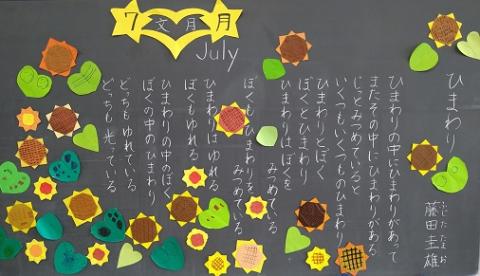 7文月月
July
ひまわり
ふじたたまお
藤田圭雄
ひまわりの中にひまわりがあって
またその中にひまわりがある
じっとみつめていると
いくつもいくつものひまわり
ひまわりとぼく
ぼくとひまわり
ひまわりはぼくを
みつめている
ぼくもひまわりを
みつめている
ひまわりはゆれる
ぼくもゆれる
ひまわりの中のぼく
ぼくの中のひまわり
どっちもゆれている
どっちも光っている